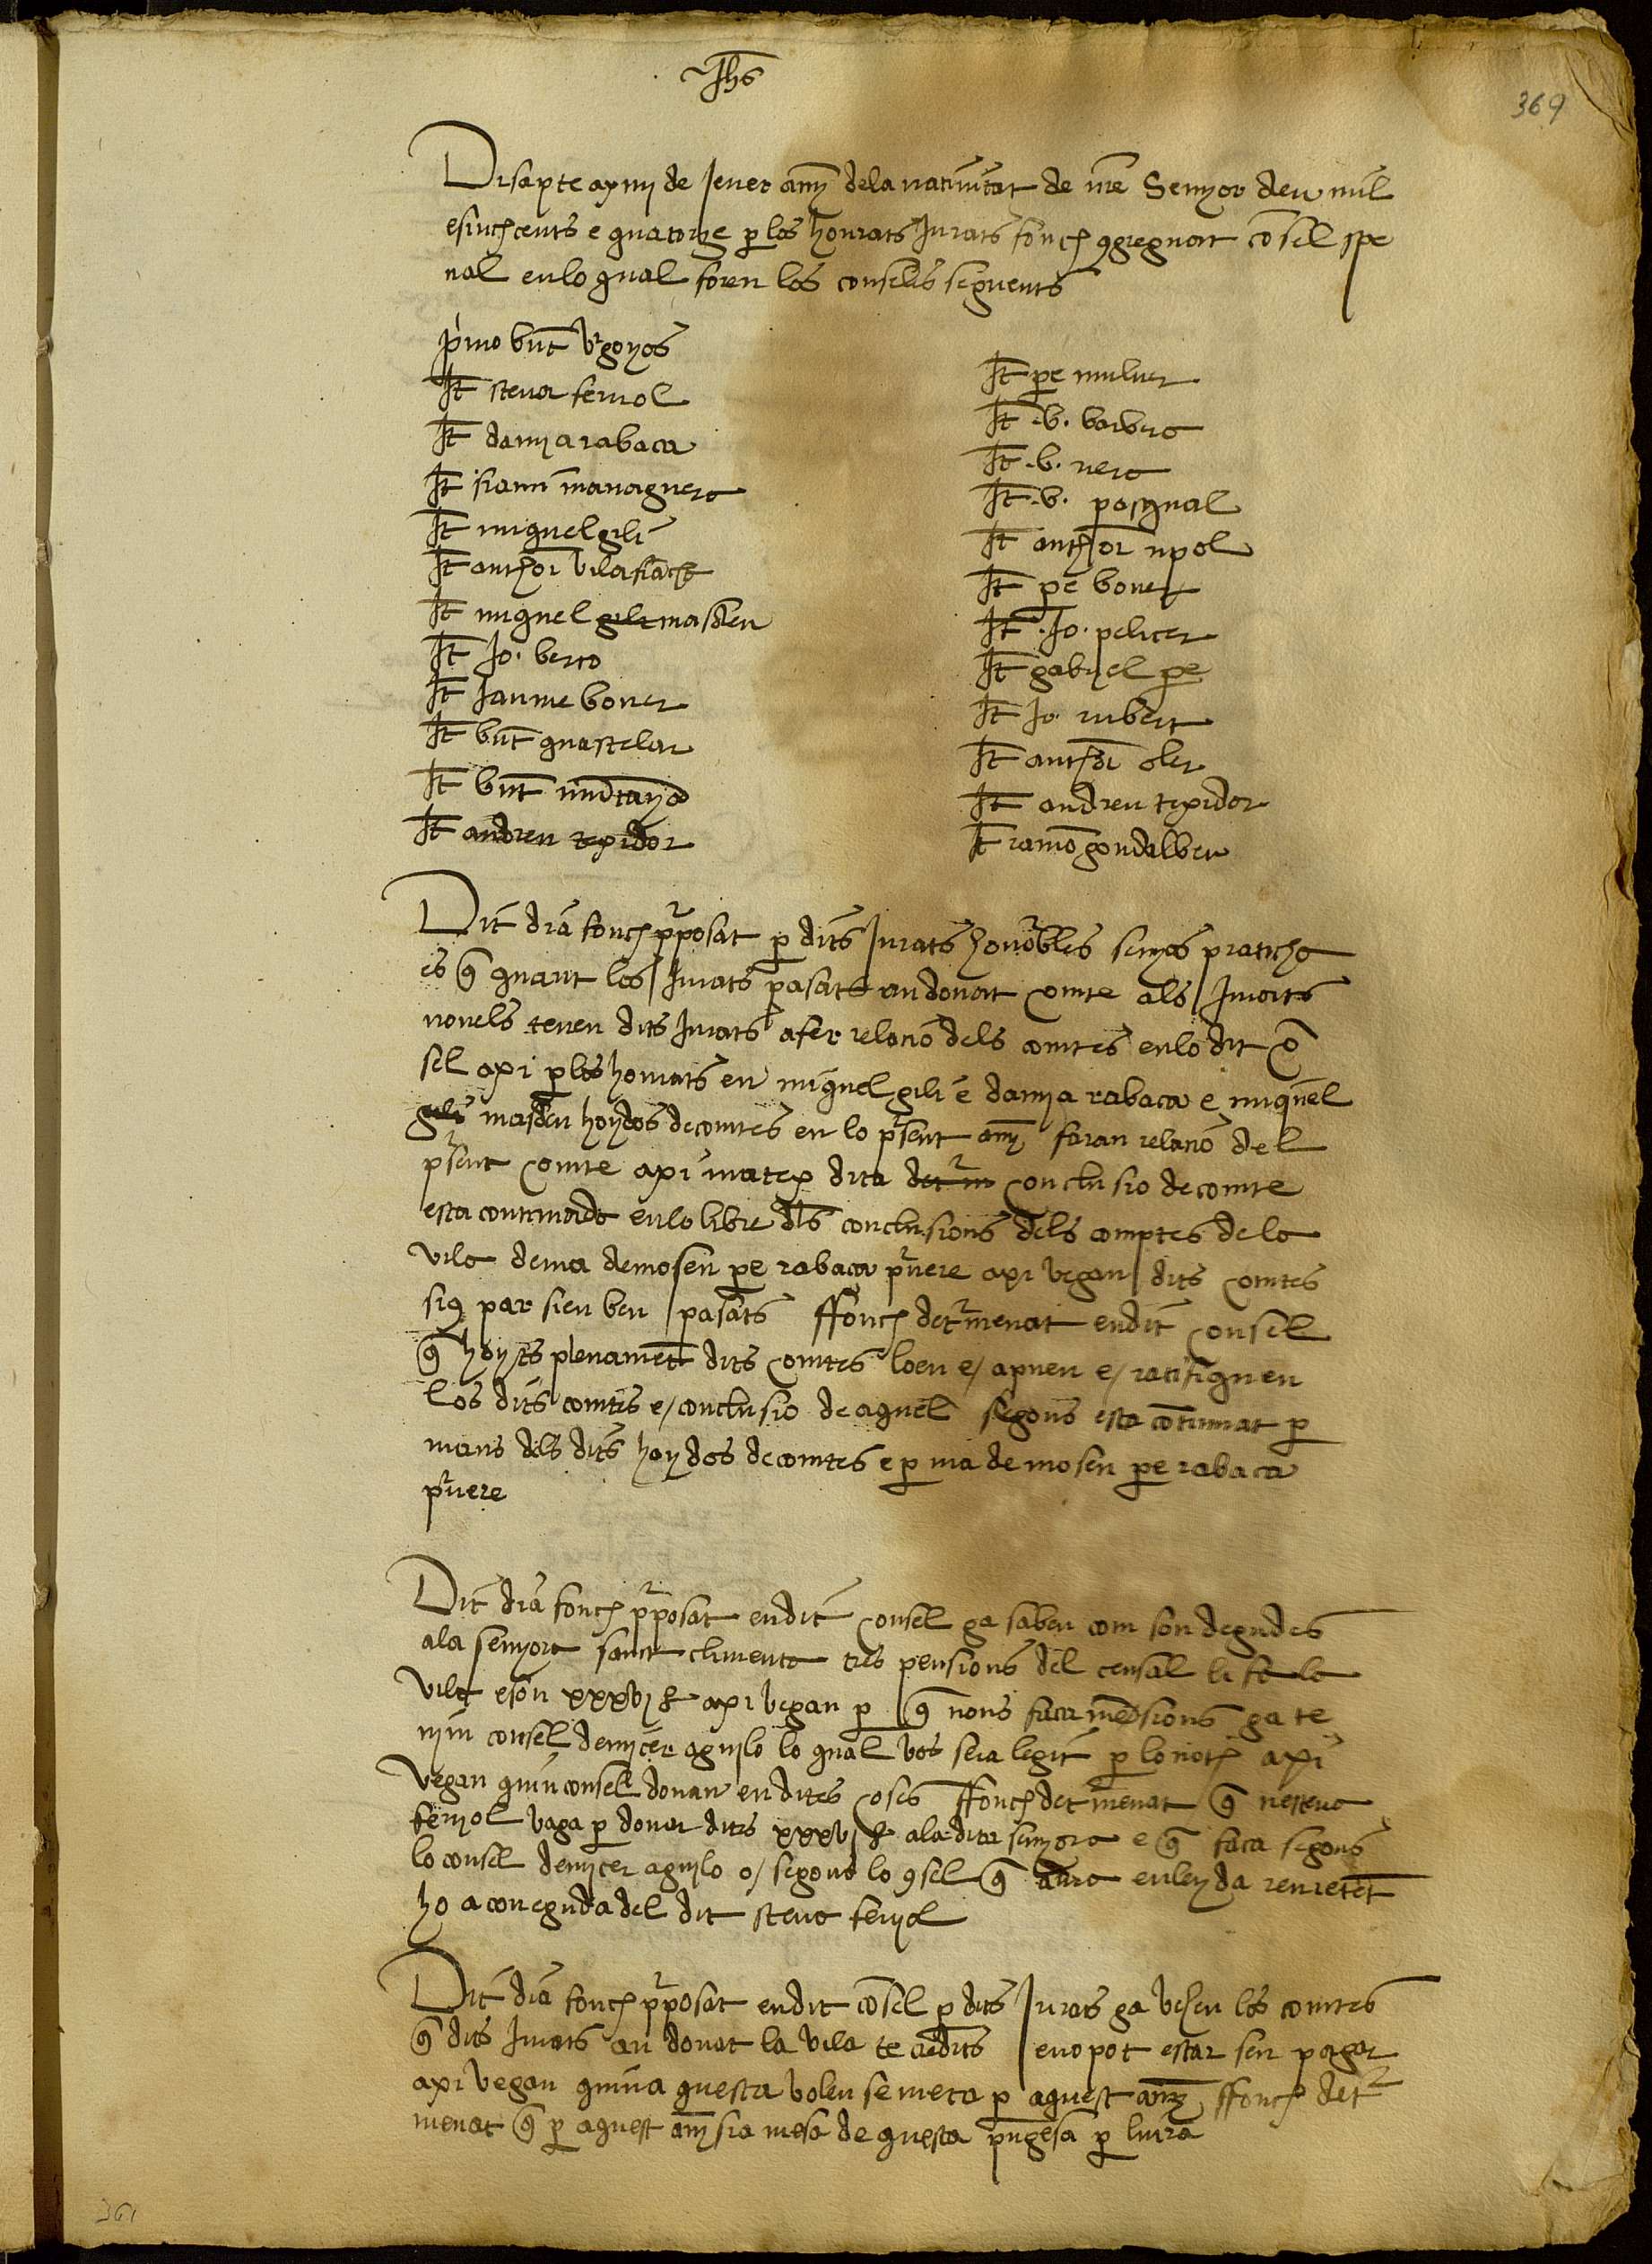 Jhs
369
Disapte a xiiij de Jener any dela nativitat de nre Senyor deu mil
e sinchcents e quatorze p los honrats Jurats fonch ɔgreguat cõsel spe
sial en lo qual foren los consellers seguents
primo bnt vrgoyos
It steva ferriol
It damia rabaca
It miquel gili
It anthoi vilafrãcha
It miquel gili masdeu
It Jo. berto
It Jaume bover
It bnt guastelar
It bnt mũtanyo
It andreu texidor
It pe muluer
It .b. barbero
It .b. nero
It .b. pasqual
It anthoi ripol
It pe bover
It .Jo. pelicer
It gabriel pe
It Jo. rubert
It anthoi oler
It andreu texidor
It ramõ gondalber
Dit dia fonch pposat p dits Jurats honorbles senyos praticha
es q̃ quant los Jurats pasats an donat comte als Jurats
novels tenen dits Jurats afer relacio dels comtes en lo dit cõ
sel axi p los honrats en miquel gili e damia rabaca e miquel
gili masdeu hoydos de comtes en lo psent any faran relacio del
psent comte axi matex dita conclusio de comte
esta continuada en lo libre dls conclusions dels comptes de la
vila de ma de mosen pe rabaca pvere axi vegan dits comtes
siq̃ par sien ben pasats ffonch detrmenat en dit consel
q̃ hoyts plenamẽt dits comtes loen e/ apven e/ ratifiquen
los dits comtes e/ conclusio de aquel segons esta cõtinuat p
mans dels dits hoydos de comtes e p ma de mosen pe rabaca
pvere
Dit dia fonch pposat en dit consel ga saben com son degudes
ala senyora sanct climenta tres pensions del censal li fa la
vila e son xxxvj ₤ axi vegan p q̃ nons faca mesions ga te
nim consel de micer aguilo lo qual vos sera legit p lo noth axi
vegan quin consel donan en dites coses ffonch detrmenat q̃ nesteva
feriol vaga p donar dites xxxvj ₤ ala dita senyora e q̃ faca segons
lo consel de micer aguilo o/ segons lo ɔsel q̃ aura en leyda remetẽt
ho a coneguda del dit steva feriol
Dit dia fonch pposat en dit cõsel p dits Jurats ga vehen los comtes
q̃ dits Jurats an donat la vila te credits e no pot estar sen pagar
axi vegan quina questa volen se meta p aquest any ffonch detr
menat q̃ p aquest any sia mesa de questa pugesa p liura
361